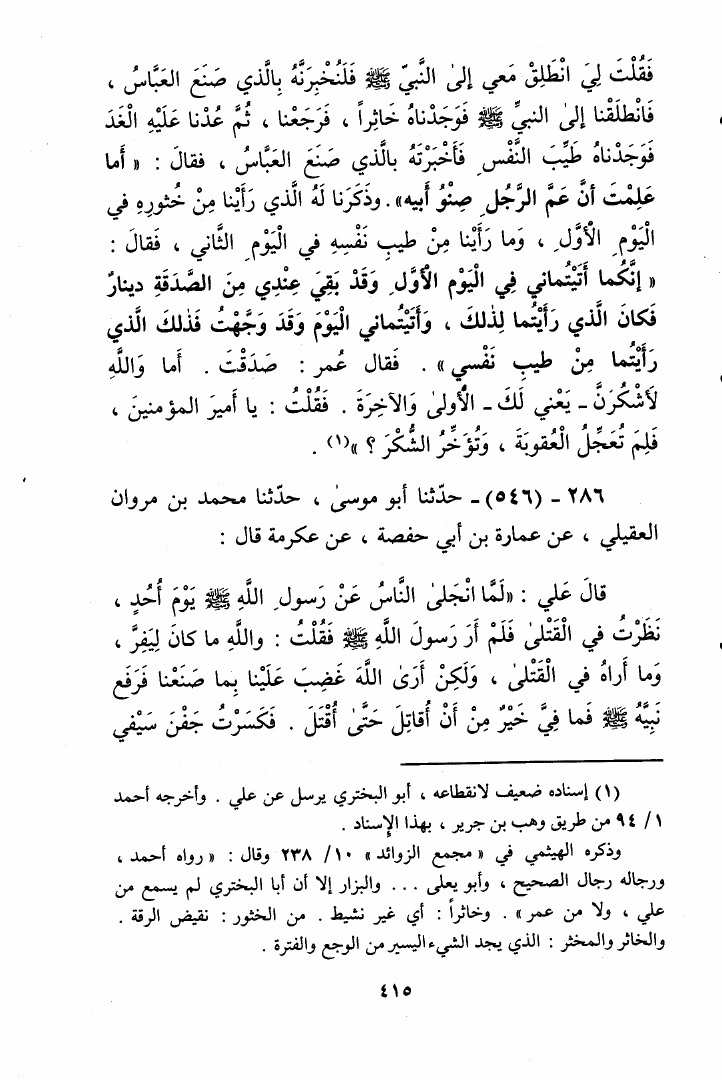 فَقُلْتَ لِيَ انْطَلِقْ مَعي إلىٰ النَّبيّ ﷺ فَلَنُخْبِرَنَّهُ بِالَّذي صَنَعَ العَبَّاسُ ،
فَانْطلَقْنا إلىٰ النبيِّ ﷺ فَوَجَدْناهُ خَاثِراً ، فَرَجَعْنا ، ثُمَّ عُدْنا عَلَيْهِ الْغَدَ
فَوَجَدْناهُ طَيِّبَ النَّفْسِ فَأَخْبَرْتَهُ بالَّذي صَنَعَ العَبَّاسُ ، فقالَ : « أَما
عَلِمْتَ أنَّ عَمَّ الرَّجُلِ صِنْوُ أَبيه» . وذَكَرنا لَهُ الَّذي رَأَيْنا مِنْ خُثورِهِ في
الْيَوْمِ الْأَوَّلِ ، وَما رَأَيْنا مِنْ طيبِ نَفْسِهِ في الْيَوْمِ الثَّاني ، فَقالَ :
« إنَّكُما أَتَيْتُماني فِي الْيَوْمِ الْأَوَّلِ وَقَدْ بَقِيَ عِنْدِي مِنَ الصَّدَقَةِ دينارٌ
فَكانَ الَّذي رَأَيْتُما لِذٰلكَ ، وَأَتَيْتُماني الْيَوْمَ وَقَدَ وَجَّهْتُ فَذٰلكَ الَّذي
رَأَيْتُما مِنْ طيبِ نَفْسي » . فَقالَ عُمر : صَدَقْتَ . أَما وَاللَّهِ
لَأَشْكُرَنَّ ـ يَعْني لَكَ ـ الْأُولىٰ وَالآخِرَةَ . فَقُلْتُ : يا أَميرَ المؤمنينَ ،
فَلِمَ تُعَجِّلُ الْعُقوبَةَ ، وَتُؤَخِّرُ الشُّكْرَ ؟ »(١) .
٢٨٦ ـ (٥٤٦) ـ حدّثنا أبو موسىٰ ، حدّثنا محمد بن مروان
العقيلي ، عن عمارة بن أبي حفصة ، عن عكرمة قال :
قالَ عَلي : «لَمَّا انْجَلىٰ النَّاسُ عَنْ رَسولِ اللَّهِ ﷺ يَوْمَ أُحُدٍ ،
نَظَرْتُ في الْقَتْلىٰ فَلَمْ أَرَ رَسولَ اللَّهِ ﷺ فَقُلْتُ : واللَّهِ ما كانَ لِيَفِرَّ ،
وَما أَراهُ في الْقَتْلىٰ ، وَلَكِنْ أَرَىٰ اللَّهَ غَضِبَ عَلَيْنا بِما صَنَعْنا فَرَفَع
نَبِيَّهُ ﷺ فَما فِيَّ خَيْرٌ مِنْ أَنْ أُقاتِلَ حَتَّىٰ أُقْتَلَ . فَكَسَرْتُ جَفْنَ سَيْفي
(١) إسناده ضعيف لانقطاعه ، أبو البختري يرسل عن علي . وأخرجه أحمد
١/ ٩٤ من طريق وهب بن جرير ، بهذا الإسناد .
وذكره الهيثمي في « مجمع الزوائد » ١٠/ ٢٣٨ وقال : « رواه أحمد ،
ورجاله رجال الصحيح ، وأبو يعلى ... والبزار إلا أن أبا البختري لم يسمع من
علي ، ولا من عمر» . وخاثراً : أي غير نشيط . من الخثور : نقيض الرقة .
والخاثر والمخثر : الذي يجد الشيء اليسير من الوجع والفترة .
٤١٥